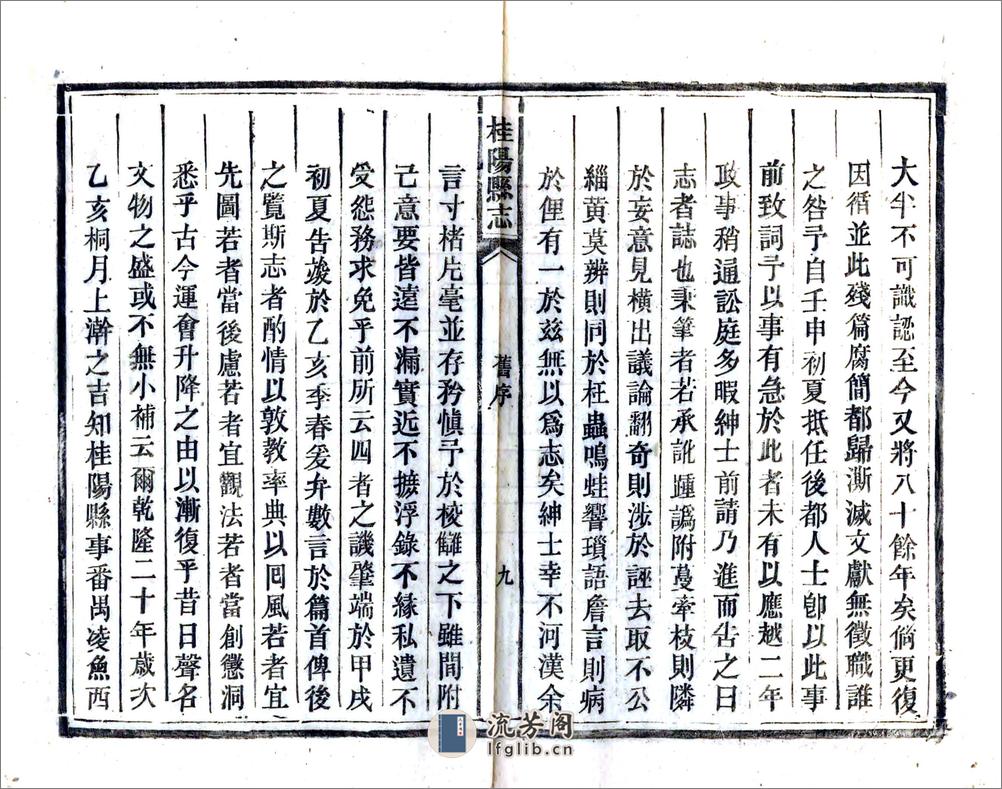 大半不可識認至今又將八十餘年矣倘更復
因循並此殘篇腐簡都歸澌滅文獻無徵職誰
之咎予自壬申初夏抵任後都人士卽以此事
前致詞予以事有急於此者未有以應越二年
政事稍通訟庭多暇紳士前請乃進而告之曰
志者誌也秉筆者若承訛踵譌附蔓牽枝則隣
於妄意見橫出議論翻奇則涉於誣去取不公
緇黄莫辨則同於枉蟲鳴蛙響瑣語詹言則病
於俚有一於兹無以爲志矣紳士幸不河漢余
桂陽縣志
舊序
九
言寸楮片毫並存矜愼予於校讎之下雖間附
己意要皆遠不漏實近不摭浮錄不緣私遺不
受怨務求免乎前所云四者之譏肇端於甲戌
初夏告竣於乙亥季春爰弁數言於篇首俾後
之覽斯志者酌情以敦教率典以囘風若者宜
先圖若者當後慮若者宜觀法若者當創懲洞
悉乎古今運會升降之由以漸復乎昔日聲名
文物之盛或不無小補云爾乾隆二十年歲次
乙亥桐月上澣之吉知桂陽縣事番禺凌魚西
流芳阁
lfglib.cn